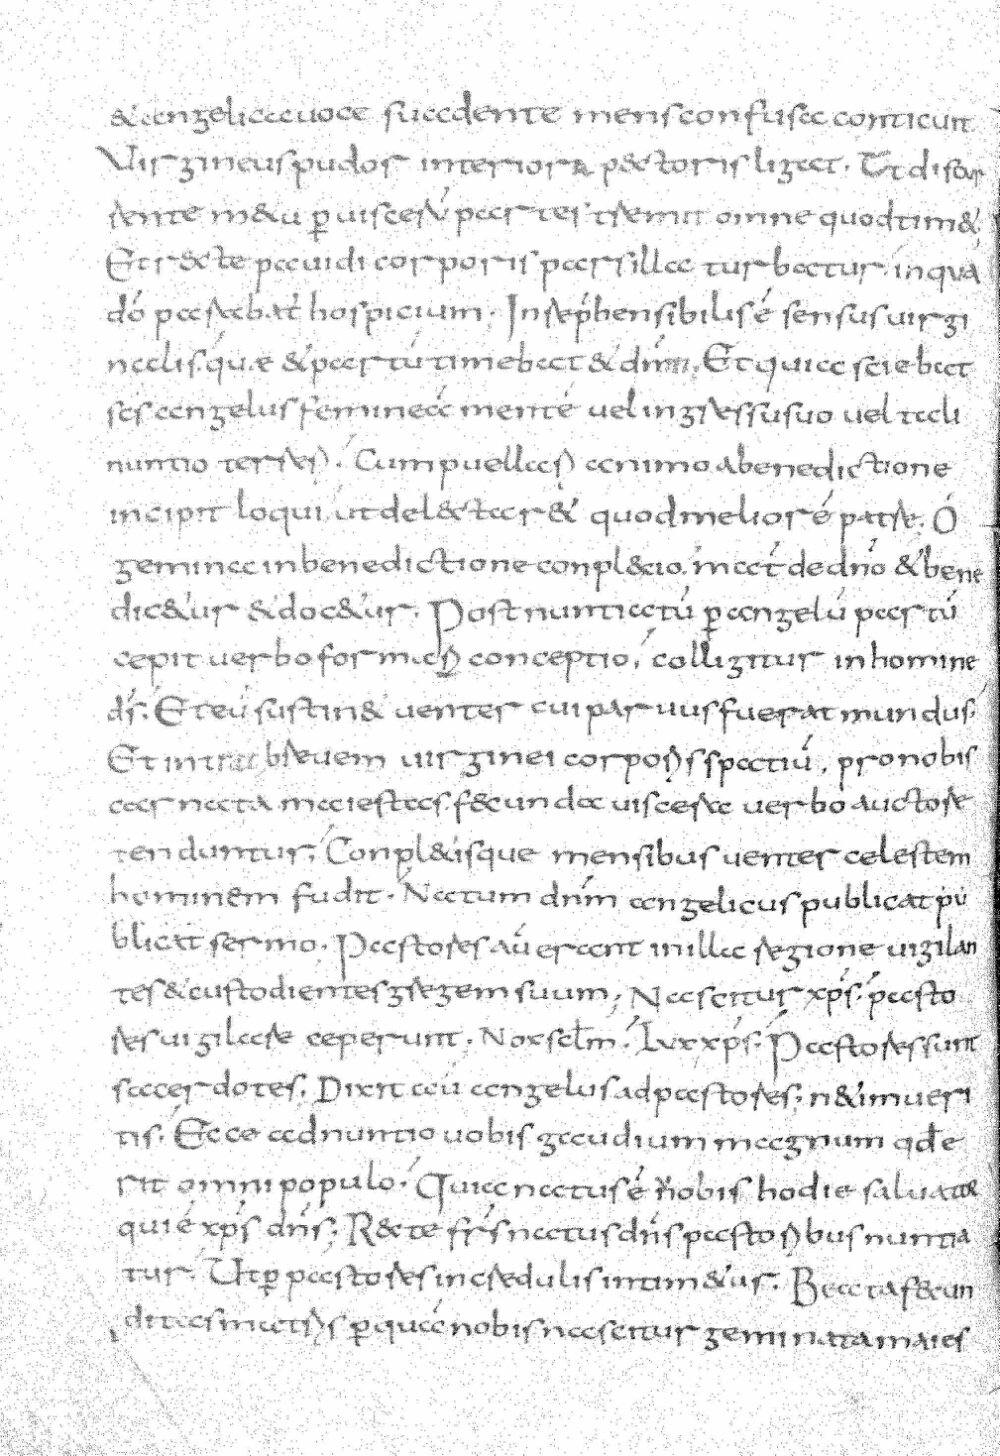 & angelica uoce suadente mens confusa conticuit
Virgineus pudor interiora p&toris ligat. Ut discur
rente m&u ꝑ uiscerū partes tremit omne quod tim&.
Et r&te pauidi corporis pars illa turbatur, in qua
dō parabat̄ hospicium. Inrep̄hensibilis ē sensus uirgi
nalis. quae & partū timebat & dn̄m. Et quia sciebat
sc̄s angelus femineā mentē uel ingressu suo uel tali
nuntio terreri. Cum puellari animo a benedictione
incipit loqui, ut del&tar& quod meliorē parare. O
gemina in benedictione conpl&io. mat̄ de dn̄o & bene
dic&ur & doc&ur. Post nuntiatū ꝑ angelū partū
cepit uerbo formari conceptio, colligitur in homine
ds̄. Et eū sustin& uenter cui paruus fuerat mundus.
Et intra breuem uirginei corporis spatiū, pro nobis
aeterna maiestas. f&unda uiscera uerbo auctore
tenduntur, Conpl&isque mensibus uenter celestem
hominem fudit. Natum dn̄m angelicus publicat pu
blicat sermo. Pastores aū erant in illa regione uigilan
tes & custodientes gregem suum, Nascitur xp̄s. pasto
res uigilare ceperunt. Nox scl̄m. Lux xp̄s. Pastores sunt
sacerdotes. Dixit aū angelus ad pastores; n& imueri
tis. Ecce adnuntio uobis gaudium magnum qd̄ e
rit omni populo. Quia natus ē uobis hodie saluator
qui ē xp̄s dn̄s. R&te fr̄s natus dn̄s pastoribus nuntia
tur. Ut ꝑ pastores incredulis intim&ur. Beata f&un
ditas matris ꝑ quā nobis nascitur geminata maies